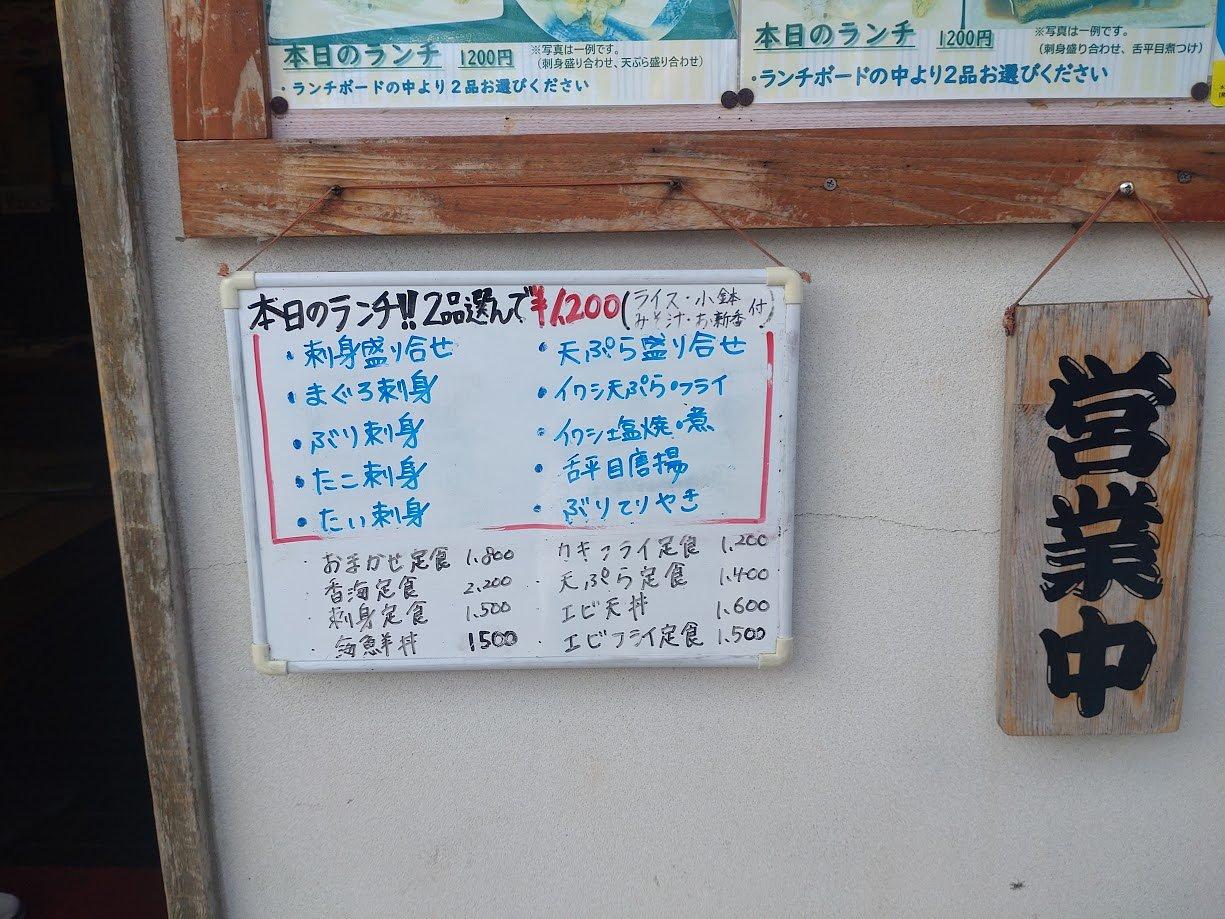 本日のランチ 1200円
※写真は一例です。
(刺身盛り合わせ、天ぷら盛り合わせ)
・ランチボードの中より2品お選びください
本日のランチ 1200円
※写真は一例です。
(刺身盛り合わせ、舌平目煮つけ)
・ランチボードの中より2品お選びください
本日のランチ!! 2品選んで ¥1,200(ライス・小鉢
みそ汁・お新香付)
・刺身盛り合せ
・まぐろ刺身
・ぶり刺身
・たこ刺身
・たい刺身
・天ぷら盛り合せ
・イワシ天ぷら・フライ
・イワシ塩焼・煮
・舌平目唐揚
・ぶりてりやき
・おまかせ定食 1.800
・香海定食 2.200
・刺身定食 1.500
・海鮮丼 1500
・カキフライ定食 1.200
・天ぷら定食 1.400
・エビ天丼 1.600
・エビフライ定食 1.500
営業中